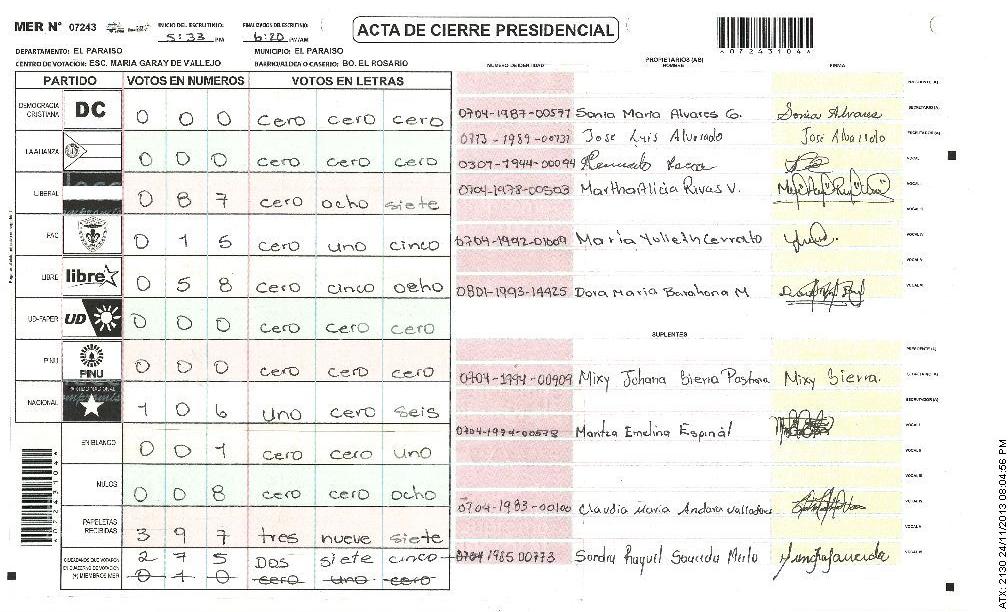 MER N° 07243 INICIO DEL ESCRUTINIO: 5:33 PM FINALIZACION DEL ESCRUTINIO: 6:20 PM/AM ACTA DE CIERRE PRESIDENCIAL
DEPARTAMENTO: EL PARAISO MUNICIPIO: EL PARAISO
CENTRO DE VOTACIÓN: ESC. MARIA GARAY DE VALLEJO BARRIO/ALDEA O CASERIO: BO. EL ROSARIO
PARTIDO VOTOS EN NUMEROS VOTOS EN LETRAS
NUMERO DE IDENTIDAD PROPIETARIOS (AS) NOMBRE FIRMA
DEMOCRACIA CRISTIANA DC 0 0 0 cero cero cero
LA ALIANZA 0 0 0 cero cero cero
LIBERAL 0 8 7 cero ocho siete
PAC 0 1 5 cero uno cinco
LIBRE libre 0 5 8 cero cinco ocho
UD-FAPER UD 0 0 0 cero cero cero
PINU PINU 0 0 0 cero cero cero
NACIONAL 1 0 6 uno cero seis
EN BLANCO 0 0 1 cero cero uno
NULOS 0 0 8 cero cero ocho
PAPELETAS RECIBIDAS 3 9 7 tres nueve siete
CIUDADANOS QUE VOTARON 2 7 5 DOS siete cinco
(+) MIEMBROS MER 0 1 0 cero uno cero
0704-1987-00577 Sonia Maria Alvares G. Sonia Alvares
0713-1989-00737 Jose Luis Alvarado Jose Alvarado
0307-1944-00094
0704-1978-00503 Martha Alicia Rivas V.
0704-1992-01609 Maria Yulieth Cerrato
0801-1993-14425 Dora Maria Barahona M
SUPLENTES
0704-1994-00909 Mixy Johana Sierra Pastrana Mixy Sierra.
0704-1994-00578 Maritza Emelina Espinal
0704-1983-00100 Claudia Maria Andara valladares
0704 1985 00773 Sandra Raquel Sauceda Merlo
A07243104A
ATX: 2130 24/11/2013 08:04:56 PM